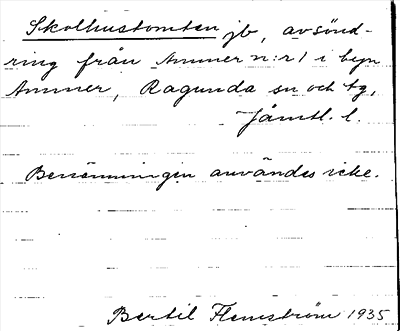 Skolhustomten jb, avsönd-
ring från Ammer n:r 1 i byn
Ammer, Ragunda sn och tg,
Jämtl. l.
Benämningen användes icke.
Bertil Flemström 1935